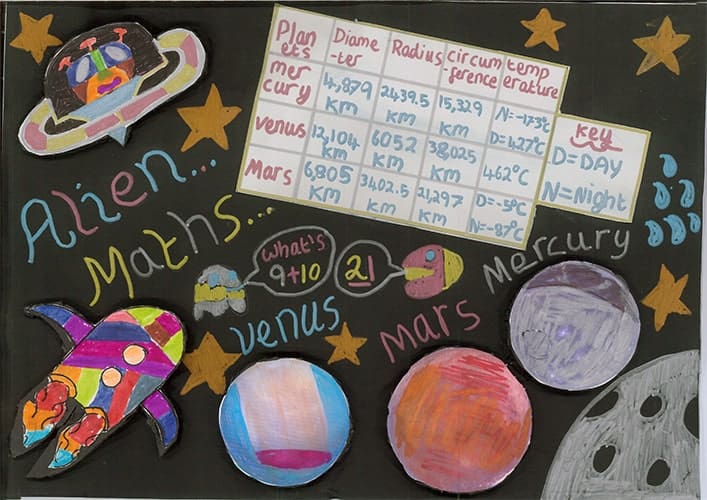 Planets Diame-ter Radius circum-ference temperature
mercury 4,879 km 2439.5 km 15,329 km N=-173°c D=427°C
venus 12,104 km 6052 km 38,025 km 462°C
Mars 6,805 km 3402.5 km 21,297 km D=-5°C N=-87°C
key
D=DAY
N=Night
Alien...
Maths...
What's
9+10
21
Mercury
venus
mars